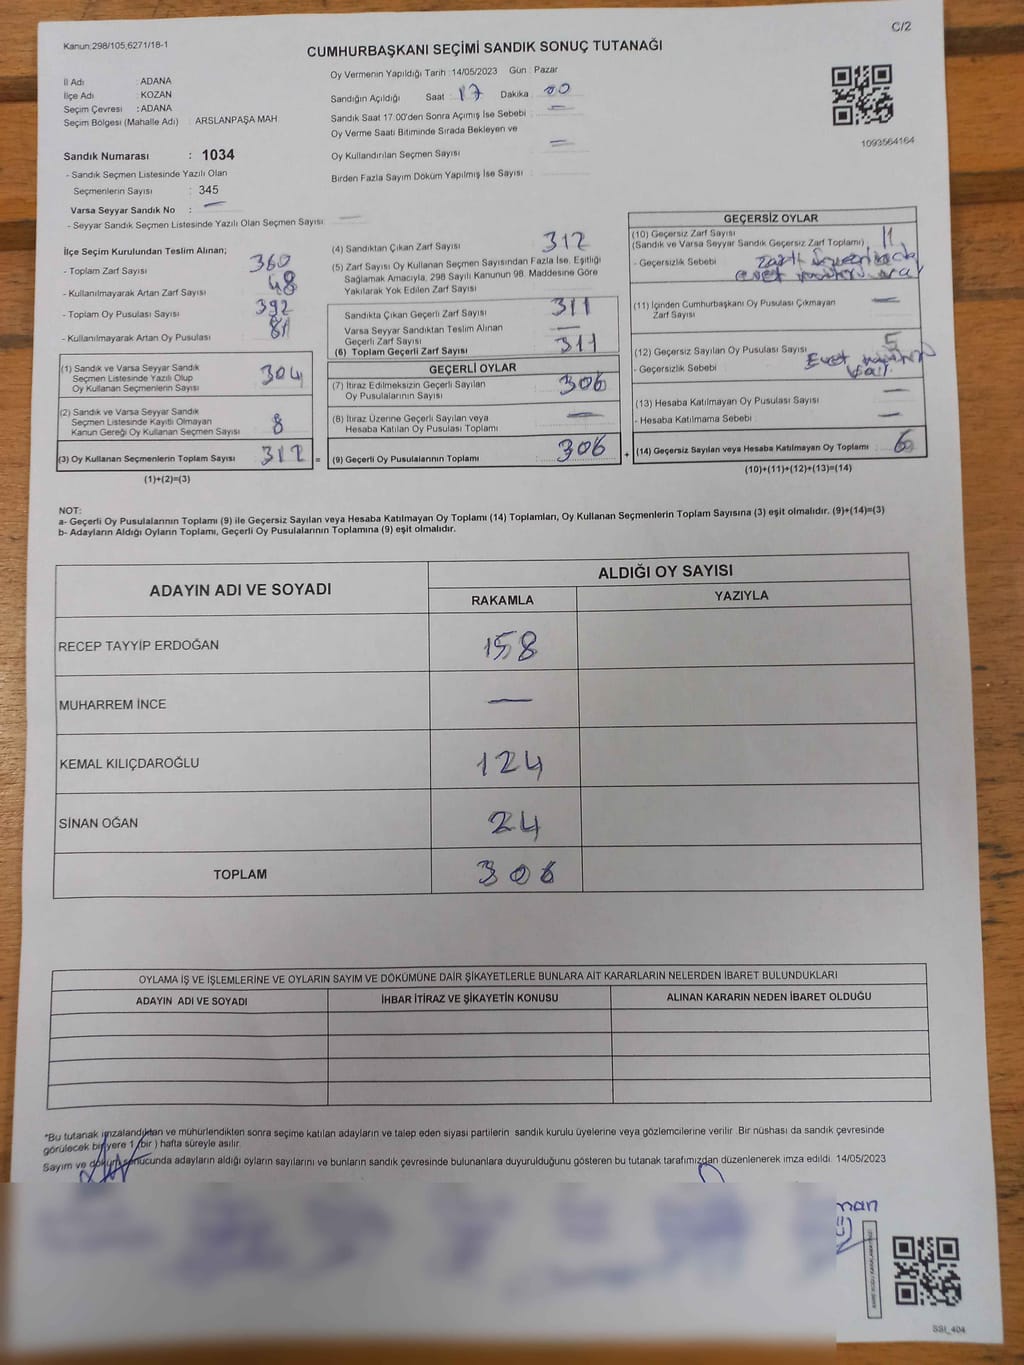 Kanun;298/105,6271/18-1
C/2
CUMHURBAŞKANI SEÇİMİ SANDIK SONUÇ TUTANAĞI
İl Adı : ADANA
İlçe Adı : KOZAN
Seçim Çevresi : ADANA
Seçim Bölgesi (Mahalle Adı) : ARSLANPAŞA MAH.
Sandık Numarası : 1034
- Sandık Seçmen Listesinde Yazılı Olan
Seçmenlerin Sayısı : 345
Varsa Seyyar Sandık No : —
- Seyyar Sandık Seçmen Listesinde Yazılı Olan Seçmen Sayısı : —
Oy Vermenin Yapıldığı Tarih : 14/05/2023 Gün : Pazar
Sandığın Açıldığı Saat : 17 Dakika : 00
Sandık Saat 17.00'den Sonra Açımış İse Sebebi : —
Oy Verme Saati Bitiminde Sırada Bekleyen ve
Oy Kullandırılan Seçmen Sayısı : —
Birden Fazla Sayım Döküm Yapılmış İse Sayısı :
1093564164
İlçe Seçim Kurulundan Teslim Alınan;
- Toplam Zarf Sayısı 360
- Kullanılmayarak Artan Zarf Sayısı 48
- Toplam Oy Pusulası Sayısı 392
- Kullanılmayarak Artan Oy Pusulası 81
(1) Sandık ve Varsa Seyyar Sandık
Seçmen Listesinde Yazılı Olup
Oy Kullanan Seçmenlerin Sayısı 304
(2) Sandık ve Varsa Seyyar Sandık
Seçmen Listesinde Kayıtlı Olmayan
Kanun Gereği Oy Kullanan Seçmen Sayısı 8
(3) Oy Kullanan Seçmenlerin Toplam Sayısı 312 =
(1)+(2)=(3)
(4) Sandıktan Çıkan Zarf Sayısı 312
(5) Zarf Sayısı Oy Kullanan Seçmen Sayısından Fazla İse, Eşitliği
Sağlamak Amacıyla, 298 Sayılı Kanunun 98. Maddesine Göre
Yakılarak Yok Edilen Zarf Sayısı
Sandıkta Çıkan Geçerli Zarf Sayısı 311
Varsa Seyyar Sandıktan Teslim Alınan
Geçerli Zarf Sayısı —
(6) Toplam Geçerli Zarf Sayısı 311
GEÇERLİ OYLAR
(7) İtiraz Edilmeksizin Geçerli Sayılan
Oy Pusulalarının Sayısı 306
(8) İtiraz Üzerine Geçerli Sayılan veya
Hesaba Katılan Oy Pusulası Toplamı —
(9) Geçerli Oy Pusulalarının Toplamı 306 +
GEÇERSİZ OYLAR
(10) Geçersiz Zarf Sayısı
(Sandık ve Varsa Seyyar Sandık Geçersiz Zarf Toplamı)
- Geçersizlik Sebebi
evet
(11) İçinden Cumhurbaşkanı Oy Pusulası Çıkmayan
Zarf Sayısı —
(12) Geçersiz Sayılan Oy Pusulası Sayısı 5
- Geçersizlik Sebebi Evet
(13) Hesaba Katılmayan Oy Pusulası Sayısı —
- Hesaba Katılmama Sebebi —
(14) Geçersiz Sayılan veya Hesaba Katılmayan Oy Toplamı 6
(10)+(11)+(12)+(13)=(14)
NOT:
a- Geçerli Oy Pusulalarının Toplamı (9) ile Geçersiz Sayılan veya Hesaba Katılmayan Oy Toplamı (14) Toplamları, Oy Kullanan Seçmenlerin Toplam Sayısına (3) eşit olmalıdır. (9)+(14)=(3)
b- Adayların Aldığı Oyların Toplamı, Geçerli Oy Pusulalarının Toplamına (9) eşit olmalıdır.
ADAYIN ADI VE SOYADI
ALDIĞI OY SAYISI
RAKAMLA YAZIYLA
RECEP TAYYİP ERDOĞAN 158
MUHARREM İNCE —
KEMAL KILIÇDAROĞLU 124
SİNAN OĞAN 24
TOPLAM 306
OYLAMA İŞ VE İŞLEMLERİNE VE OYLARIN SAYIM VE DÖKÜMÜNE DAİR ŞİKAYETLERLE BUNLARA AİT KARARLARIN NELERDEN İBARET BULUNDUKLARI
ADAYIN ADI VE SOYADI İHBAR İTİRAZ VE ŞİKAYETİN KONUSU ALINAN KARARIN NEDEN İBARET OLDUĞU
*Bu tutanak imzalandıktan ve mühürlendikten sonra seçime katılan adayların ve talep eden siyasi partilerin sandık kurulu üyelerine veya gözlemcilerine verilir .Bir nüshası da sandık çevresinde
görülecek bir yere 1 ( bir ) hafta süreyle asılır.
Sayım ve döküm sonucunda adayların aldığı oyların sayılarını ve bunların sandık çevresinde bulunanlara duyurulduğunu gösteren bu tutanak tarafımızdan düzenlenerek imza edildi. 14/05/2023
SSI_404